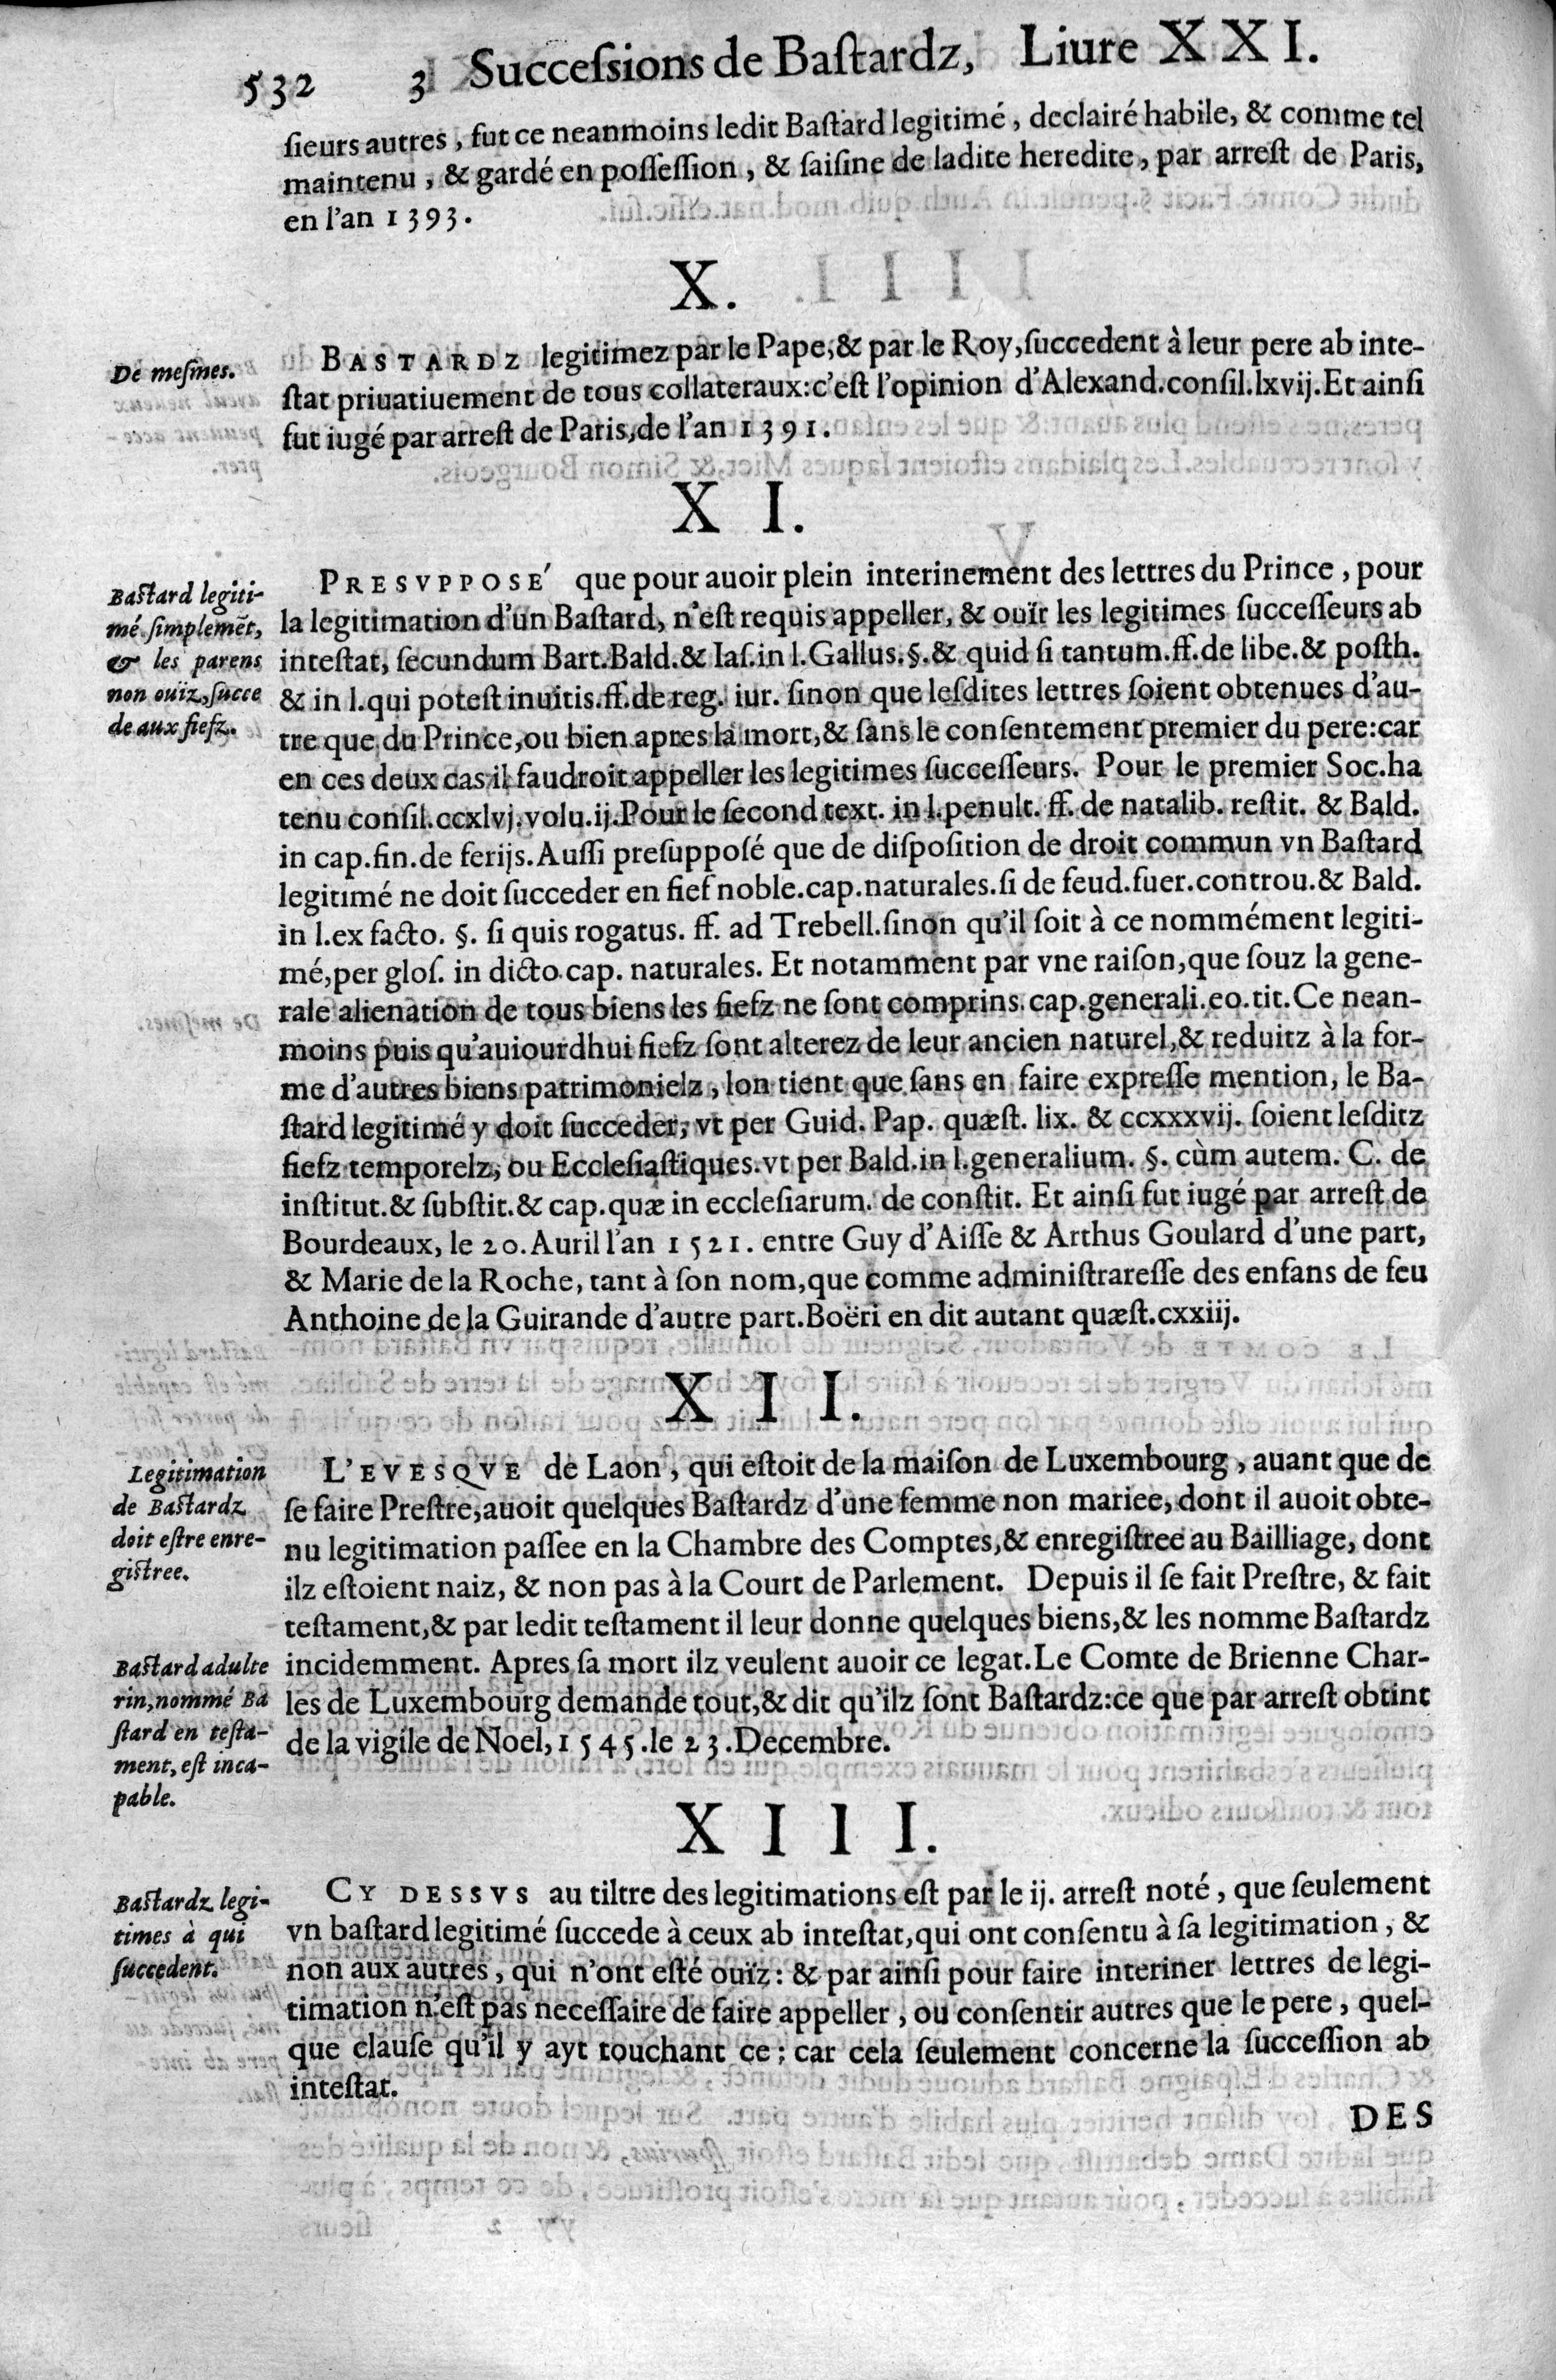 532 3 Succeſsions de Baſtardz, Liure XXI.
ſieurs autres, fut ce neanmoins ledit Baſtard legitimé, declairé habile, & comme tel
maintenu, & gardé en poſſeſſion, & ſaiſine de ladite heredite, par arreſt de Paris,
en l'an 1393.
X.
De meſmes.
BASTARDZ legitimez par le Pape,& par le Roy,ſuccedent à leur pere ab inte-
ſtat priuatiuement de tous collateraux:c'eſt l'opinion d'Alexand.conſil.lxvij.Et ainſi
fut iugé par arreſt de Paris,de l'an 1391.
XI.
Baſtard legiti-
mé ſimplemẽt,
& les parens
non ouïz,ſucce
de aux fiefz.
PRESVPPOSE' que pour auoir plein interinement des lettres du Prince, pour
la legitimation d'un Baſtard, n'eſt requis appeller, & ouïr les legitimes ſucceſſeurs ab
inteſtat, ſecundum Bart.Bald.& Iaſ.in l.Gallus.§.& quid ſi tantum.ff.de libe.& poſth.
& in l.qui poteſt inuitis.ff.de reg. iur. ſinon que leſdites lettres ſoient obtenues d'au-
tre que du Prince,ou bien apres la mort,& ſans le conſentement premier du pere:car
en ces deux cas il faudroit appeller les legitimes ſucceſſeurs. Pour le premier Soc.ha
tenu conſil.ccxlvj.volu.ij.Pour le ſecond text. in l.penult. ff. de natalib. reſtit. & Bald.
in cap.fin.de ferijs.Auſſi preſuppoſé que de diſpoſition de droit commun vn Baſtard
legitimé ne doit ſucceder en fief noble.cap.naturales.ſi de feud.fuer.controu.& Bald.
in l.ex facto. §. ſi quis rogatus. ff. ad Trebell.ſinon qu'il ſoit à ce nommément legiti-
mé,per gloſ. in dicto cap. naturales. Et notamment par vne raiſon,que ſouz la gene-
rale alienation de tous biens les fiefz ne ſont comprins.cap.generali.eo.tit.Ce nean-
moins puis qu'auiourdhui fiefz ſont alterez de leur ancien naturel,& reduitz à la for-
me d'autres biens patrimonielz, lon tient que ſans en faire expreſſe mention, le Ba-
ſtard legitimé y doit ſucceder, vt per Guid. Pap. quæſt. lix. & ccxxxvij. ſoient leſditz
fiefz temporelz, ou Eccleſiaſtiques.vt per Bald.in l.generalium. §. cùm autem. C. de
inſtitut.& ſubſtit.& cap.quæ in eccleſiarum. de conſtit. Et ainſi fut iugé par arreſt de
Bourdeaux, le 20.Auril l'an 1521. entre Guy d'Aiſſe & Arthus Goulard d'une part,
& Marie de la Roche, tant à ſon nom,que comme adminiſtrareſſe des enfans de feu
Anthoine de la Guirande d'autre part.Boëri en dit autant quæſt.cxxiij.
XII.
Legitimation
de Baſtardz
doit eſtre enre-
giſtree.
L'EVESQVE de Laon, qui eſtoit de la maiſon de Luxembourg, auant que de
ſe faire Preſtre,auoit quelques Baſtardz d'une femme non mariee, dont il auoit obte-
nu legitimation paſſee en la Chambre des Comptes,& enregiſtree au Bailliage, dont
ilz eſtoient naiz, & non pas à la Court de Parlement. Depuis il ſe fait Preſtre, & fait
teſtament,& par ledit teſtament il leur donne quelques biens,& les nomme Baſtardz
Baſtard adulte
rin,nommé Ba
ſtard en teſta-
ment, eſt inca-
pable.
incidemment. Apres ſa mort ilz veulent auoir ce legat.Le Comte de Brienne Char-
les de Luxembourg demande tout,& dit qu'ilz ſont Baſtardz:ce que par arreſt obtint
de la vigile de Noel,1545.le 23.Decembre.
XIII.
Baſtardz legi-
times à qui
ſuccedent.
CY DESSVS au tiltre des legitimations eſt par le ij. arreſt noté, que ſeulement
vn baſtard legitimé ſuccede à ceux ab inteſtat,qui ont conſentu à ſa legitimation, &
non aux autres, qui n'ont eſté ouïz: & par ainſi pour faire interiner lettres de legi-
timation n'eſt pas neceſſaire de faire appeller, ou conſentir autres que le pere, quel-
que clauſe qu'il y ayt touchant ce; car cela ſeulement concerne la ſucceſſion ab
inteſtat.
DES